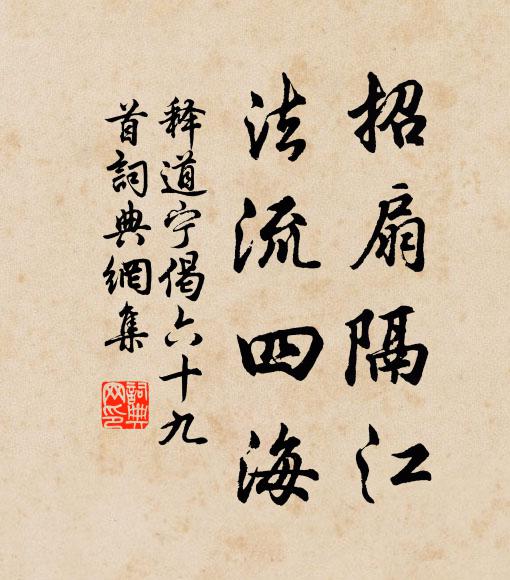 招扇隔江
法流四海
释道宁偈六十九
首词典網集
詞典網印